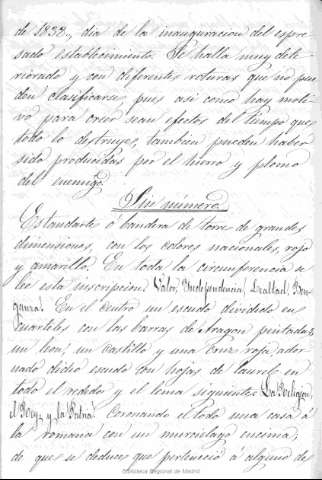 de 1838, dia de la inauguracion del expre-
sado establecimiento. Se halla muy dete-
riorado y con diferentes roturas que no pue
den clasificarse, pues asi como hay moti-
vo para creer sean efectos del tiempo que
todo lo destruye, tambien pueden haber
sido producidas por el hierro y plomo
del enemigo.
Sin número.
Estandarte ó bandera de torre de grandes
dimensiones, con los colores nacionales, rojo
y amarillo. En toda la circunferencia se
lee esta inscripcion: Valor, Independencia, Lealtad, Ven-
ganza. En el centro un escudo dividido en
cuarteles con las barras de Aragon pintadas,
un leon, un castillo y una Cruz roja, ador
nado dicho escudo con hojas de laurel en
todo el rededor y el lema siguiente: La Religion,
el Rey, y la Patria. Coronando el todo una casa á
la romana con un murcielago encima,
de que se deduce que perteneció á alguno de
Biblioteca Regional de Madrid